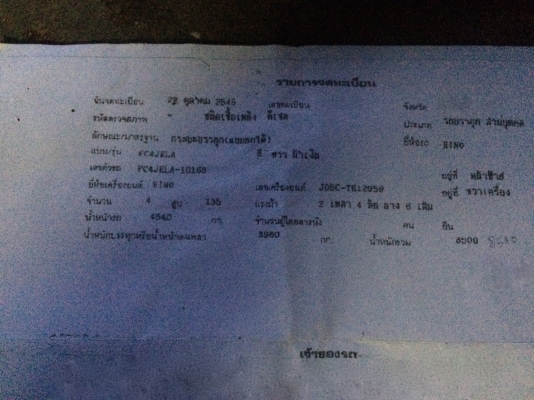 รายการจดทะเบียน
วันจดทะเบียน 22 ตุลาคม 2545 เลขทะเบียน จังหวัด
ชนิดเชื้อเพลิง ดีเซล ประเภท รถบรรทุก ส่วนบุคคล
ลักษณะ/มาตรฐาน กระบะบรรทุก(ยกเทได้) ยี่ห้อรถ HINO
แบบ/รุ่น FC4JELA สี ขาว น้ำเงิน
เลขตัวรถ FC4JELA-10168 อยู่ที่ หน้าซ้าย
ยี่ห้อเครื่องยนต์ HINO เลขเครื่องยนต์ J05C-TE12959 อยู่ที่ ขวาเครื่อง
จำนวน 4 สูบ 135 แรงม้า 2 เพลา 4 ล้อ ยาง 6 เส้น
น้ำหนักรถ 4540 กก. จำนวนผู้โดยสารนั่ง คน ยืน
น้ำหนักบรรทุกหรือน้ำหนักลงเพลา 3960 กก. น้ำหนักรวม 8500
เจ้าของรถ